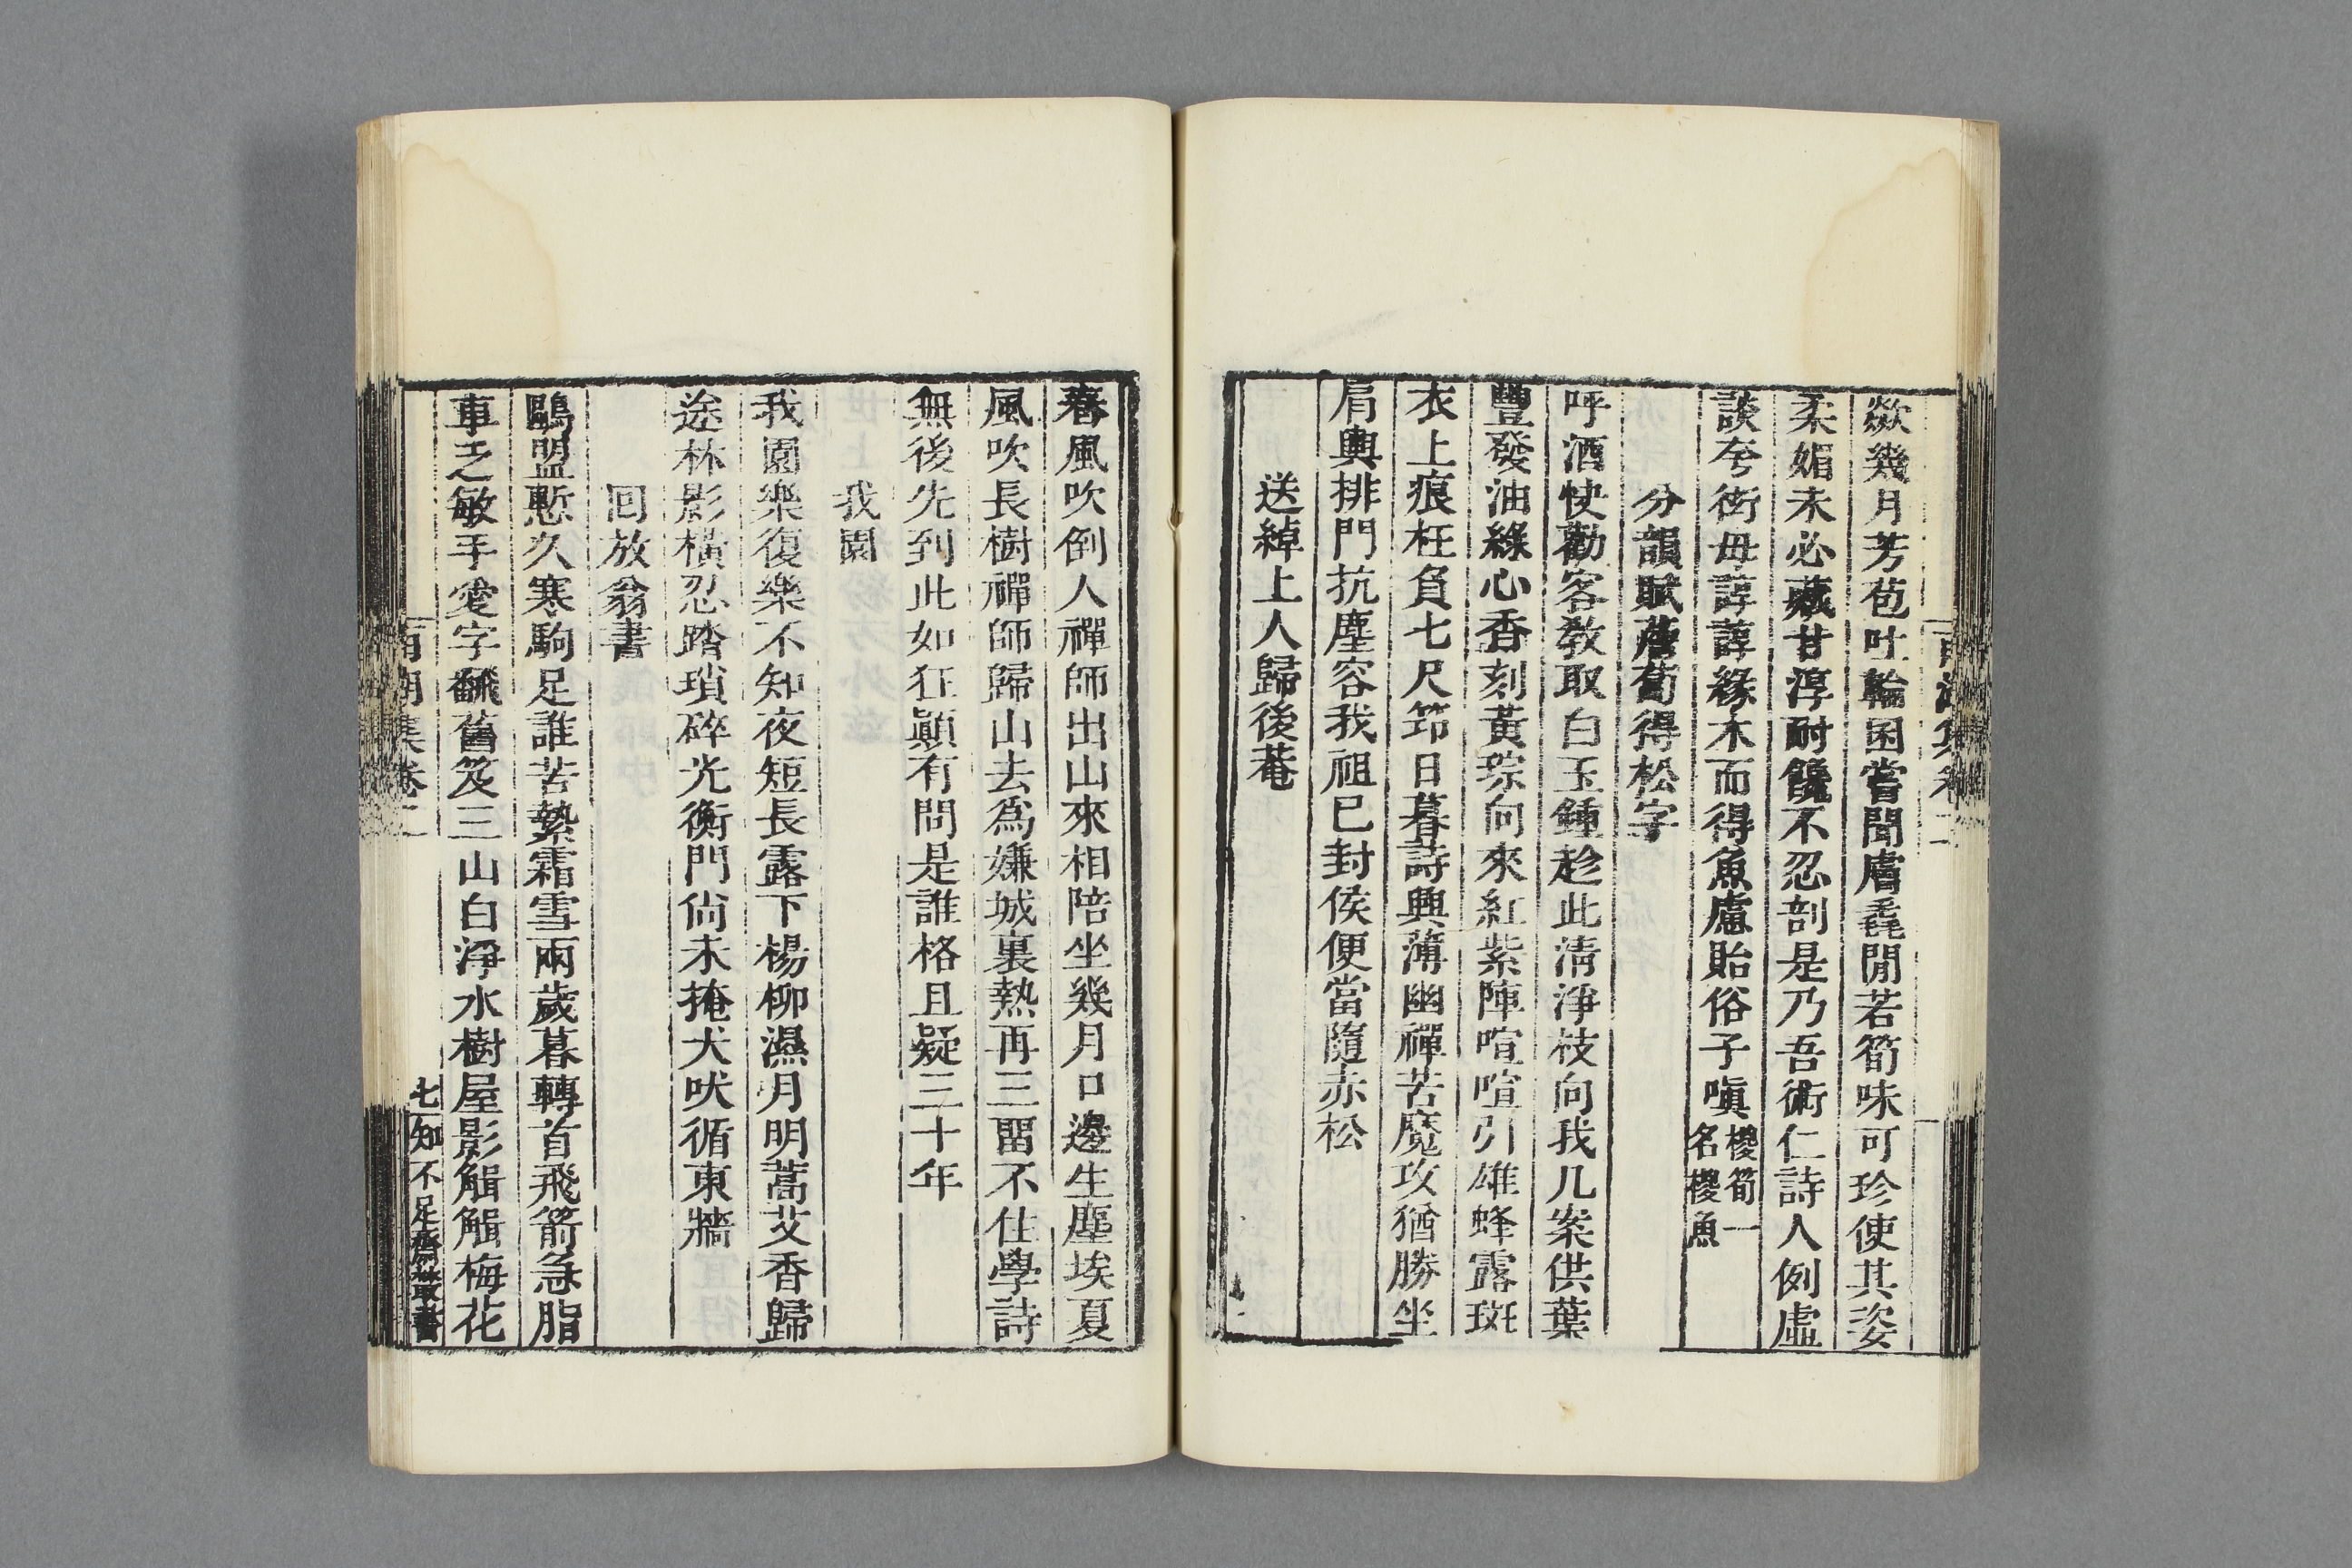 歘幾月芳苞吐輪囷嘗聞膚毳閒若筍味可珍使其姿
柔媚未必藏甘淳耐饞不忍剖是乃吾術仁詩人例虛
談夸衒毋諄諄緣木而得魚慮貽俗子嗔椶筍一名椶魚
分韻賦薝蔔得松字
呼酒快勸客教取白玉鍾趁此清淨枝向我几案供葉
豐發油綠心香刻黃琮向來紅紫陣喧喧引雄蜂露斑
衣上痕枉負七尺筇日暮詩興薄幽禪苦魔攻猶勝坐
肩輿排門抗塵容我祖已封侯便當隨赤松
送綽上人歸後菴
春風吹倒人禪師出山來相陪坐幾月口邊生塵埃夏
風吹長樹禪師歸山去為嫌城裏熱再三留不住學詩
無後先到此如狂顛有問是誰格且疑三十年
我園
我園樂復樂不知夜短長露下楊柳濕月明蒿艾香歸
途林影橫忍踏瑣碎光衡門尙未掩犬吠循東牆
回放翁書
鷗盟慙久寒駒足誰苦縶霜雪兩歲暮轉首飛箭急脂
車乏敏手愛字飜舊笈三山白淨水樹屋影觠觠梅花
南湖集卷二
七
知不足齋叢書